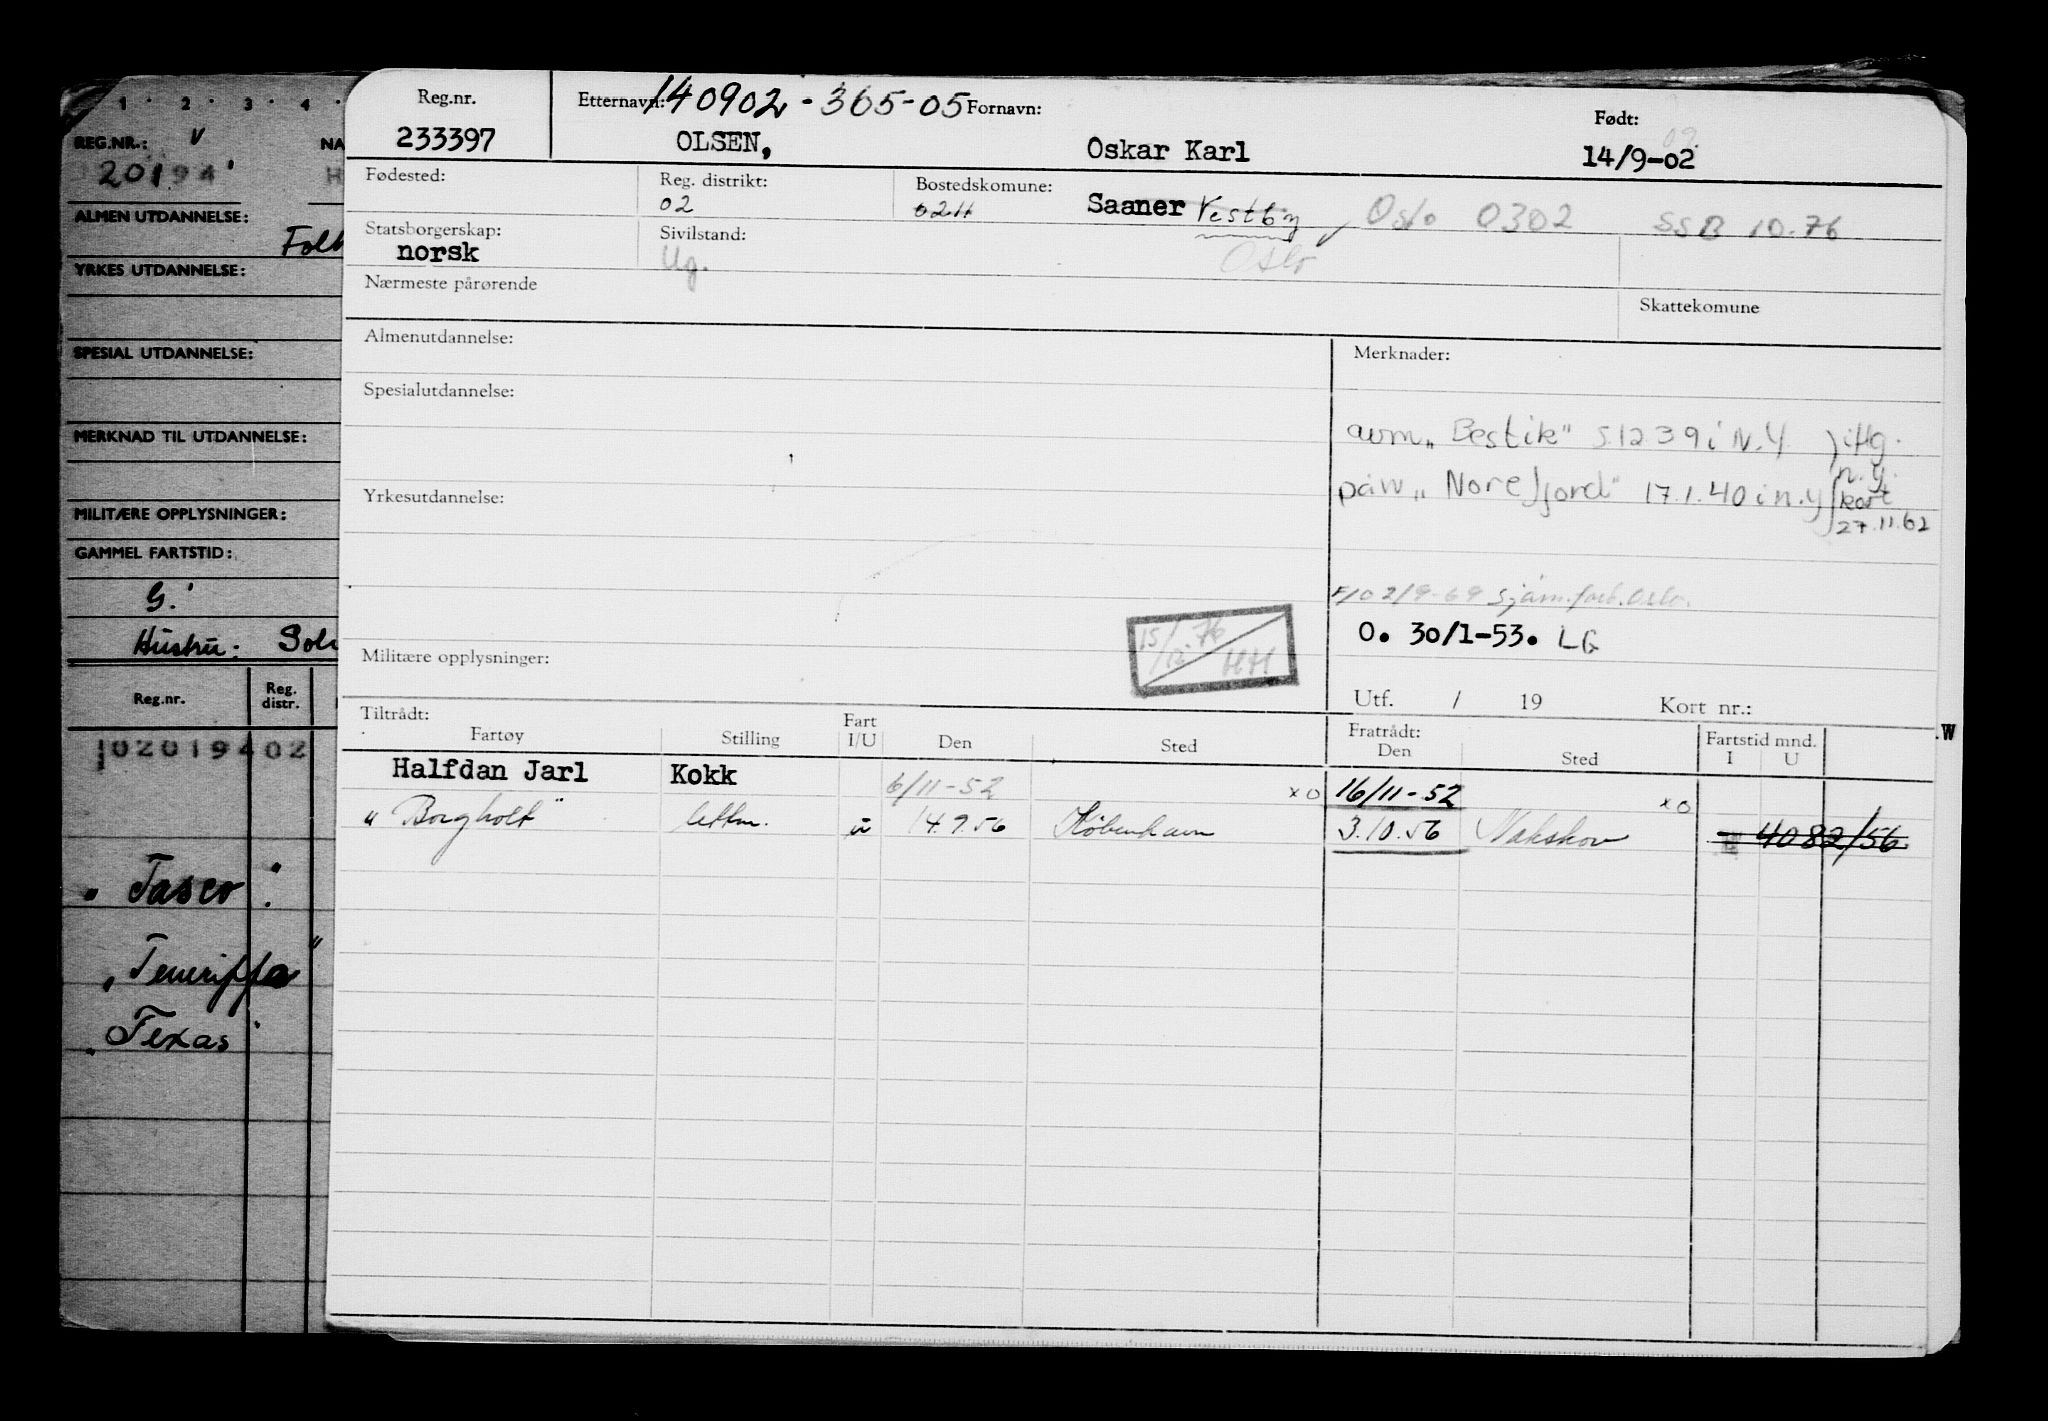 1 · 2 · 3 · 4 ·
REG.NR.: V NA
20194 H
ALMEN UTDANNELSE:
Folk
YRKES UTDANNELSE:
SPESIAL UTDANNELSE:
MERKNAD TIL UTDANNELSE:
MILITÆRE OPPLYSNINGER:
GAMMEL FARTSTID:
G.
Hustru: Sol
Reg.nr. Reg. distr.
102019402
"Tasco"
"Teneriffa"
"Texas"
Reg.nr. Etternavn: 140902-365-05 Fornavn: Født:
233397 OLSEN, Oskar Karl 14/9-02
Fødested: Reg. distrikt: Bostedskomune:
02 0211 Saaner Vestby Oslo 0302 SSB 10.76
Statsborgerskap: Sivilstand:
norsk Ug. Oslo
Nærmeste pårørende Skattekomune
Almenutdannelse: Merknader:
Spesialutdannelse:
avm "Bestik" 5.12 39 i N.Y. ) iflg.
påm "Norefjord" 17.1.40 i n.y n.y. kort
27.11.62
Yrkesutdannelse:
2/9-69 sjøm.forb. Oslo.
O. 30/1-53. LG
15/12.76 HH
Militære opplysninger:
Utf. / 19 Kort nr.:
Tiltrådt: Fratrådt: Fartstid mnd.
Fartøy Stilling Fart I/U Den Sted Den Sted I U
W
Halfdan Jarl Kokk 6/11-52 xo 16/11-52 xo
"Borgholt" lettm. u 14.9.56 København 3.10.56 Nakskov 4082/56